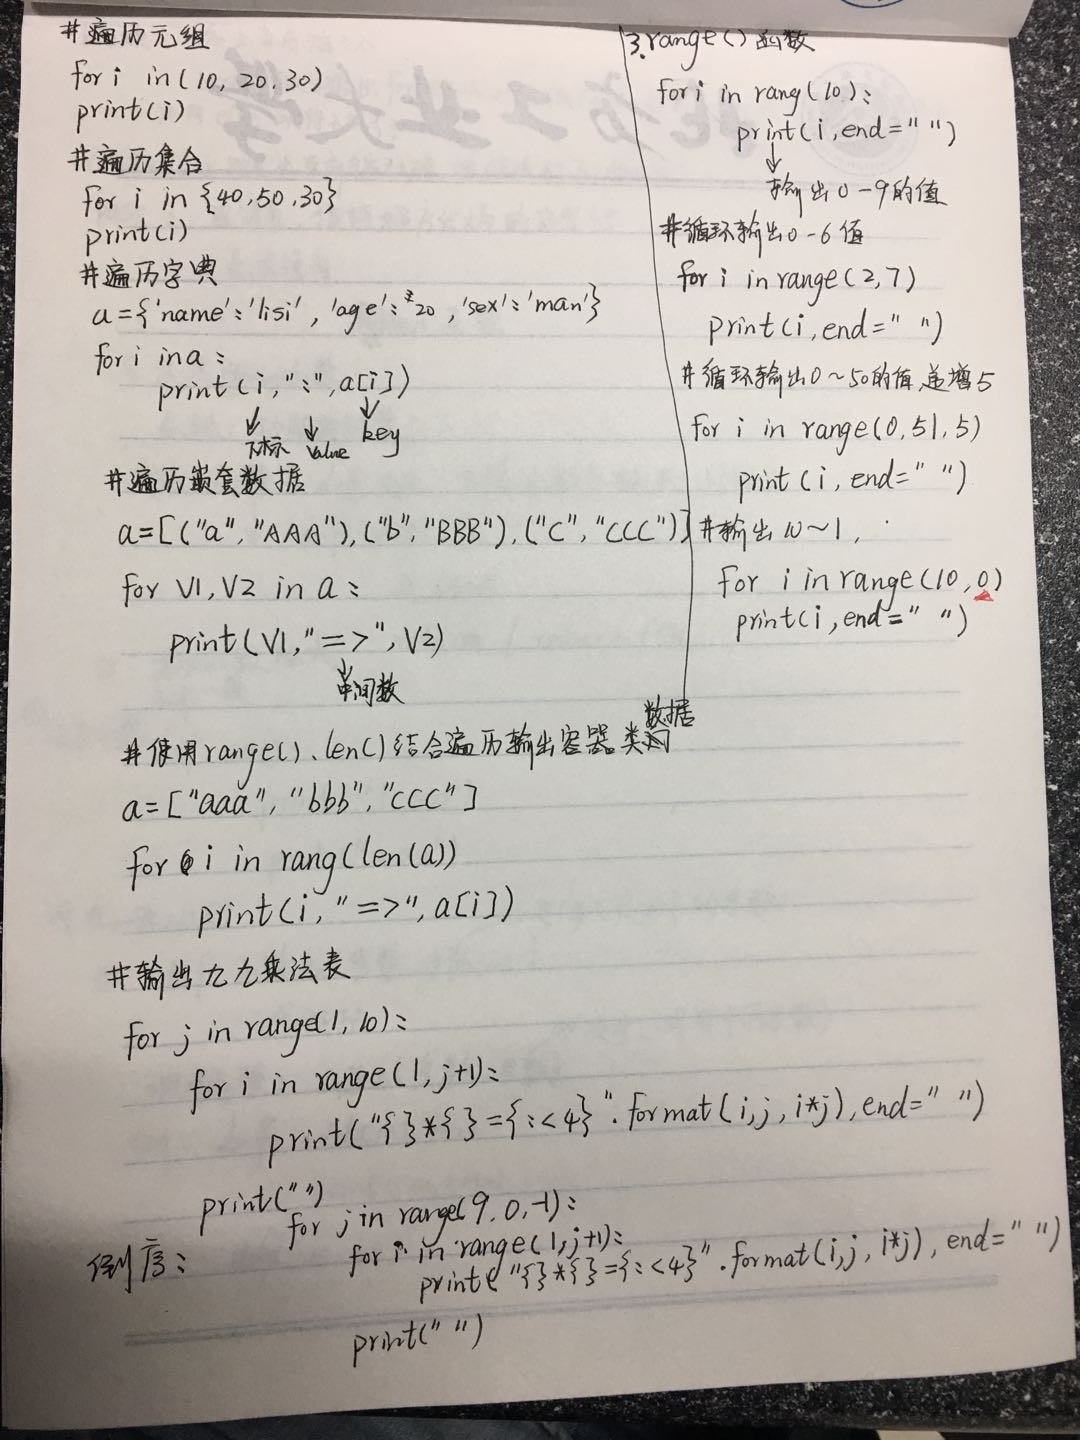 #遍历元组
for i in (10, 20, 30)
print(i)
#遍历集合
for i in {40,50,30}
print(i)
#遍历字典
a={'name':'lisi','age':20,'sex':'man'}
for i in a:
print(i,":",a[i])
下标 value key
#遍历嵌套数据
a=[("a","AAA"),("b","BBB"),("C","CCC")]
for V1,V2 in a:
print(V1,"=>",V2)
中间数
3.range()函数
for i in rang(10):
print(i,end=" ")
输出0-9的值
#循环输出0-6值
for i in range(2,7)
print(i,end=" ")
#循环输出0~50的值,递增5
for i in range(0,51,5)
print(i,end=" ")
#输出10~1,
for i in range(10,0)
print(i,end=" ")
数据
#使用range().len()结合遍历输出容器类的
a=["aaa","bbb","ccc"]
for i in rang(len(a))
print(i,"=>",a[i])
#输出九九乘法表
for j in range(1,10):
for i in range(1,j+1):
print("{}*{}={:<4}".format(i,j,i*j),end=" ")
print("")
倒序:
for j in range(9,0,-1):
for i in range(1,j+1):
print("{}*{}={:<4}".format(i,j,i*j),end=" ")
print(" ")